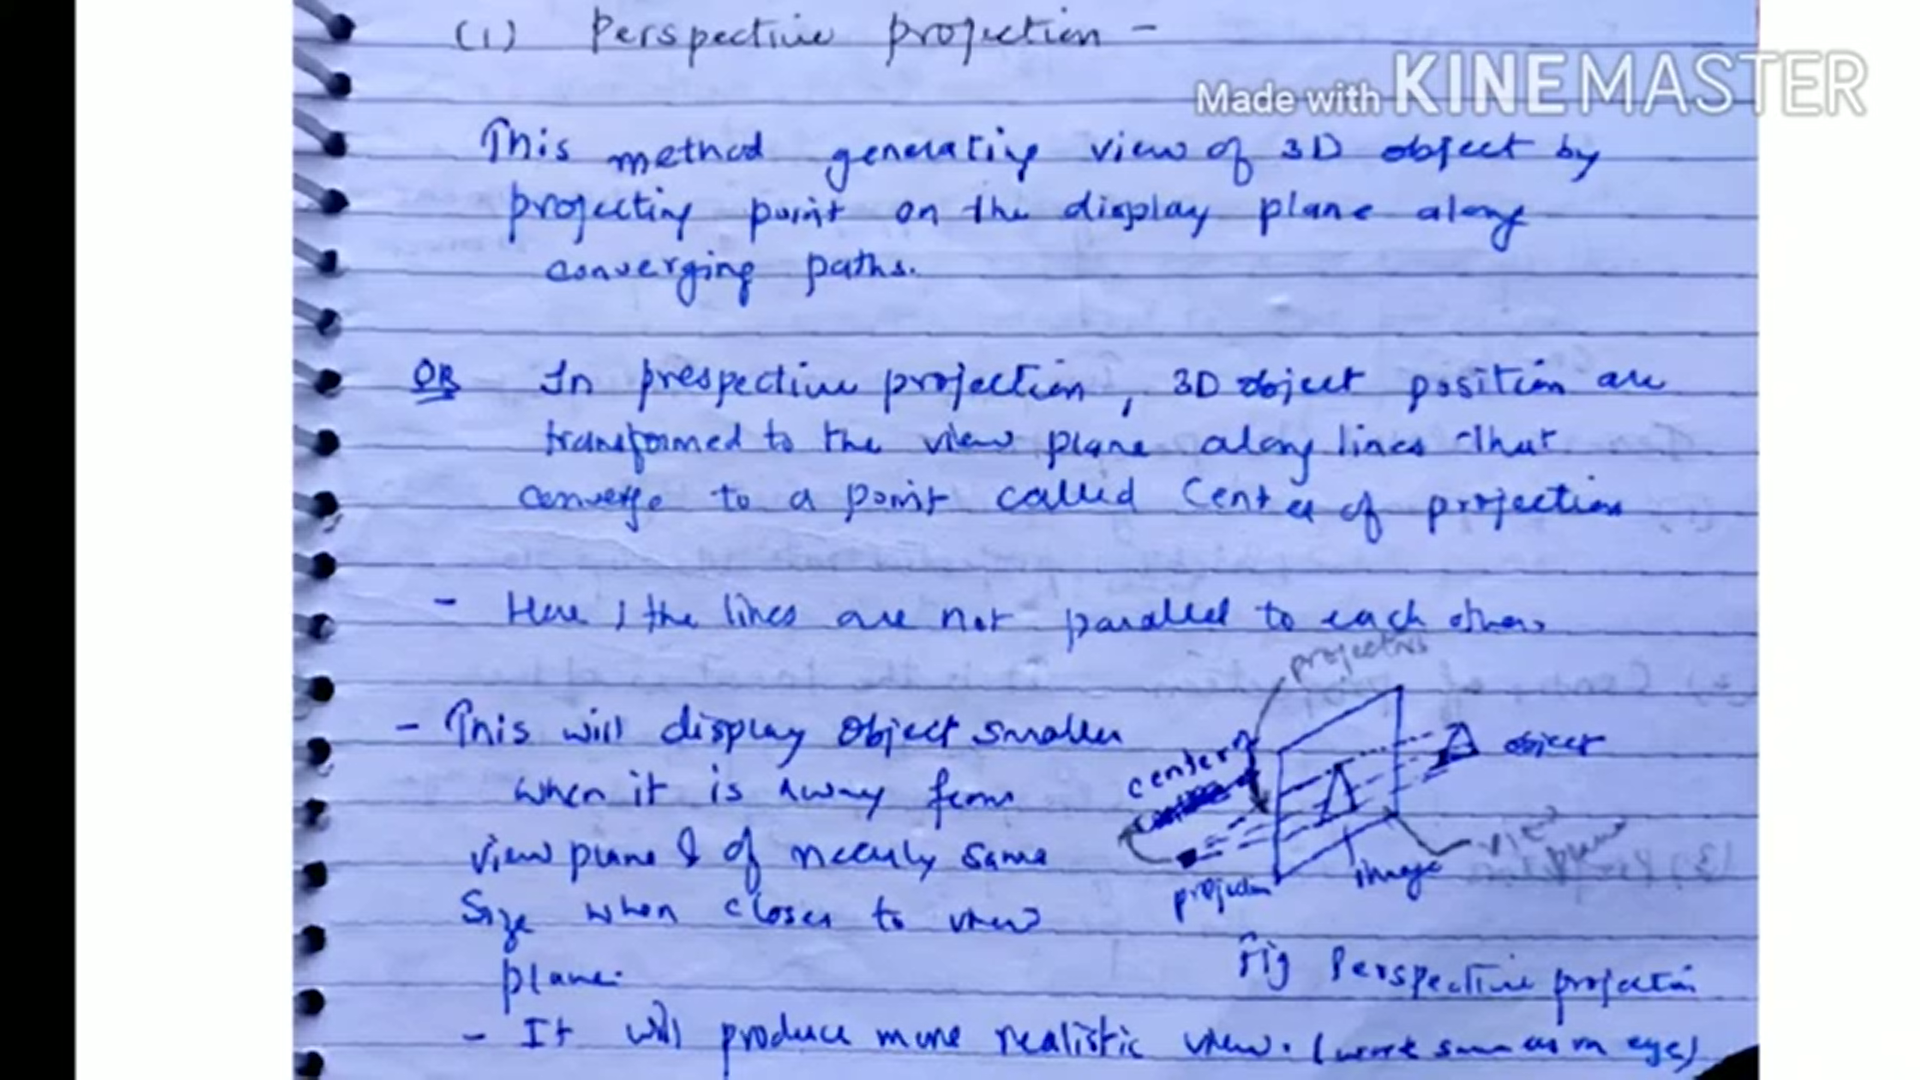 (1) Perspective projection -
Made with KINEMASTER
This method generating view of 3D object by
projecting point on the display plane along
converging paths.
OR In prespective projection, 3D object position are
transformed to the view plane along lines that
converge to a point called Center of projection
- Here, the lines are not parallel to each other.
projectors
- This will display object smaller
when it is away from
view plane & of neerly same
size when closer to view
plane.
center of
object
projection
image
view plane
Fig Perspective projection
- It will produce more realistic view. (work same as in eye)